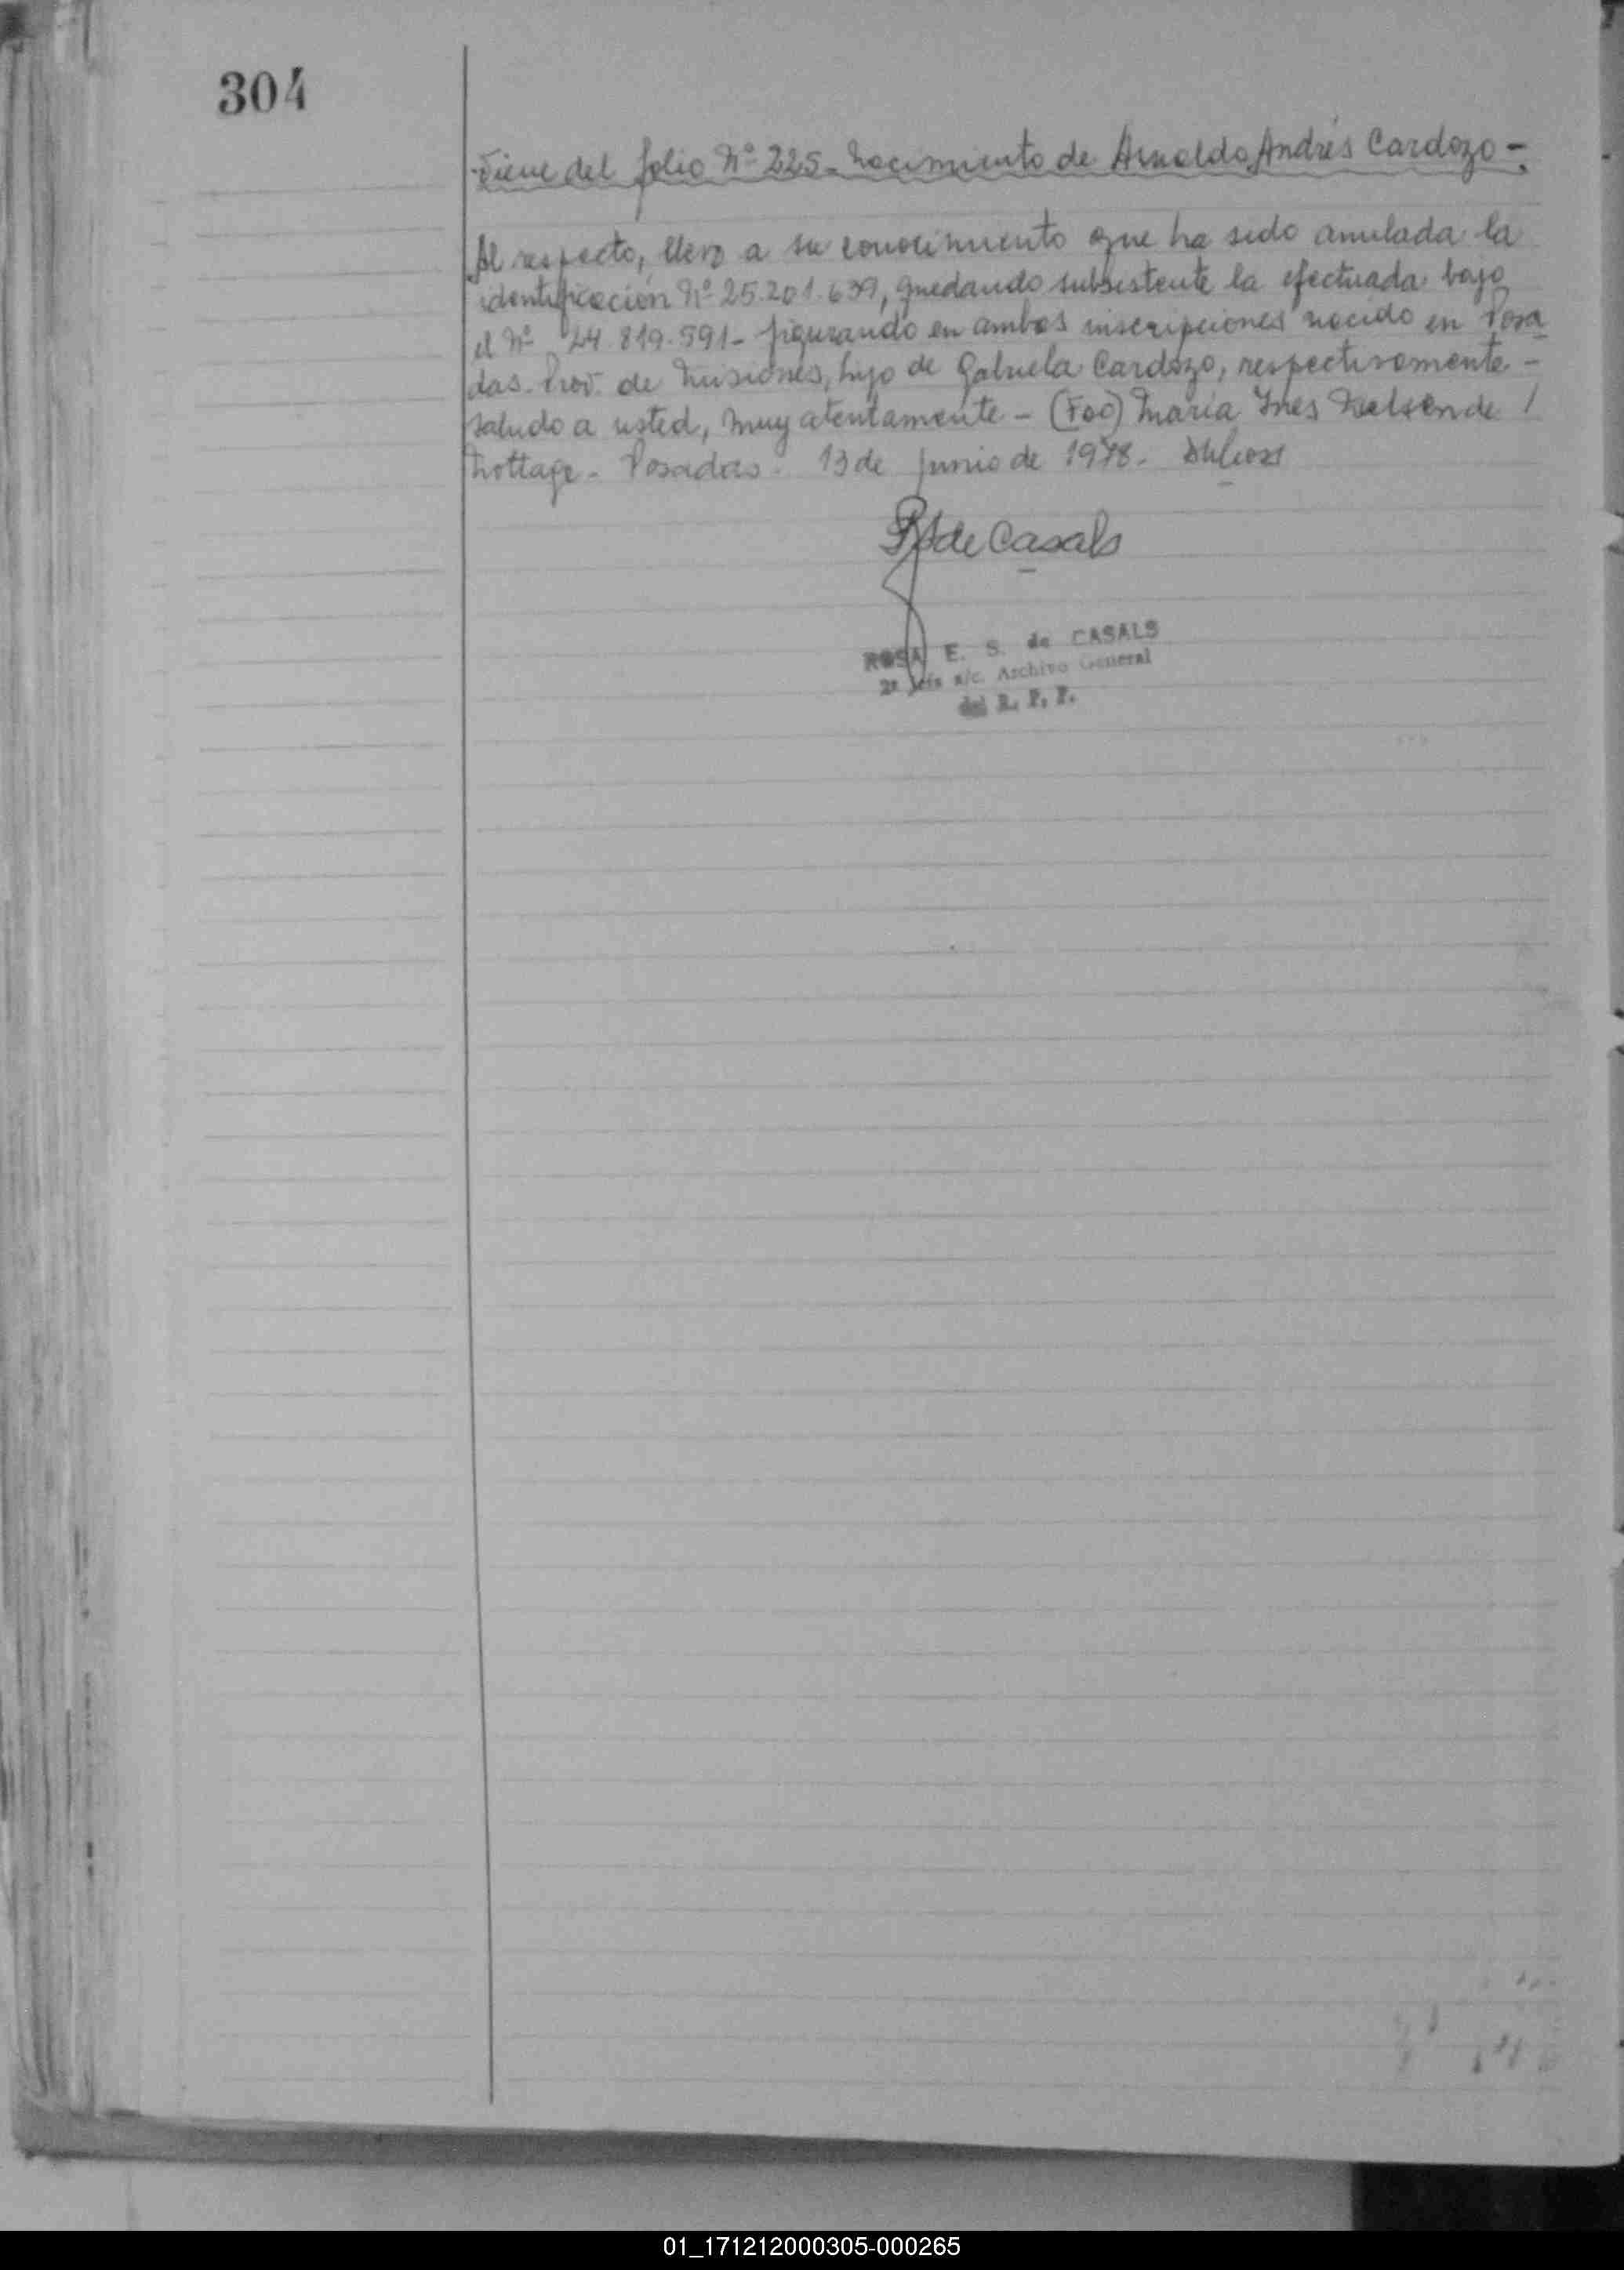 304
Viene del folio Nº 225 - Nacimiento de Arnaldo Andrés Cardozo -
Al respecto, llevo a su conocimiento que ha sido anulada la
identificación Nº 25.201.639, quedando subsistente la efectuada bajo
el Nº 24.819.591 - figurando en ambas inscripciones nacido en Posa
das. Prov. de Misiones, hijo de Gabriela Cardozo, respectivamente -
saludo a usted, muy atentamente - (Fdo) María Ines de
Posadas. 13 de Junio de 1978.
de Casals
ROSA E. S. de CASALS
2º Jefe a/c. Archivo General
del R. P. P.
01_171212000305-000265